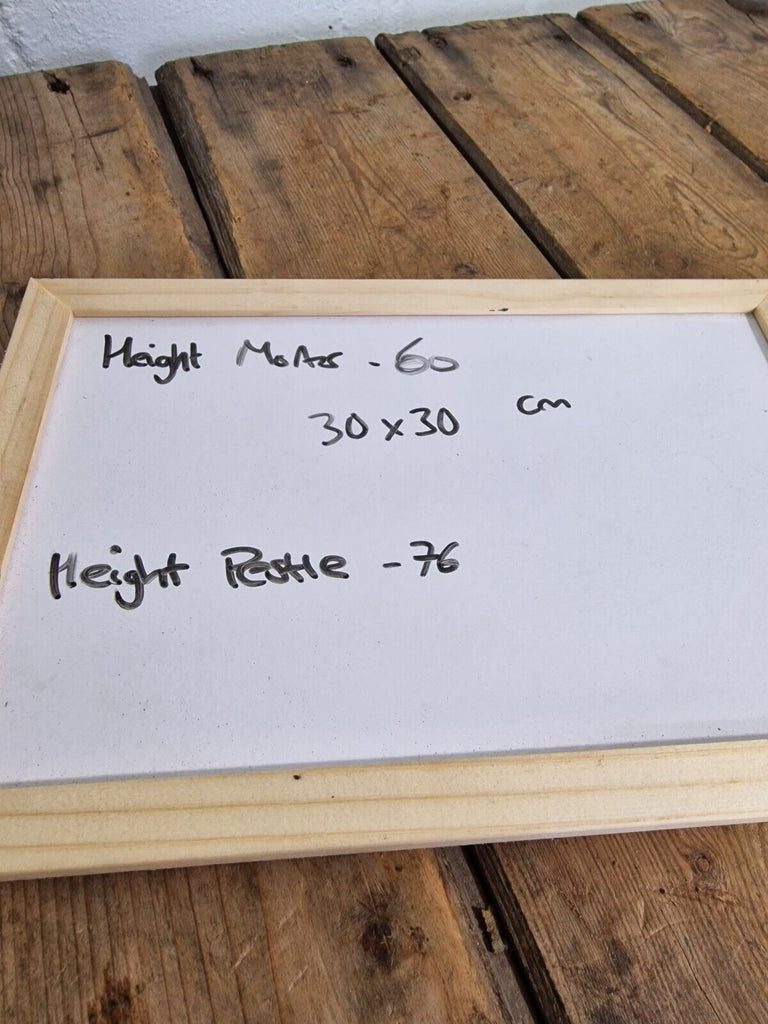 Height Motar - 60
30 x 30 cm
Height Pestle - 76